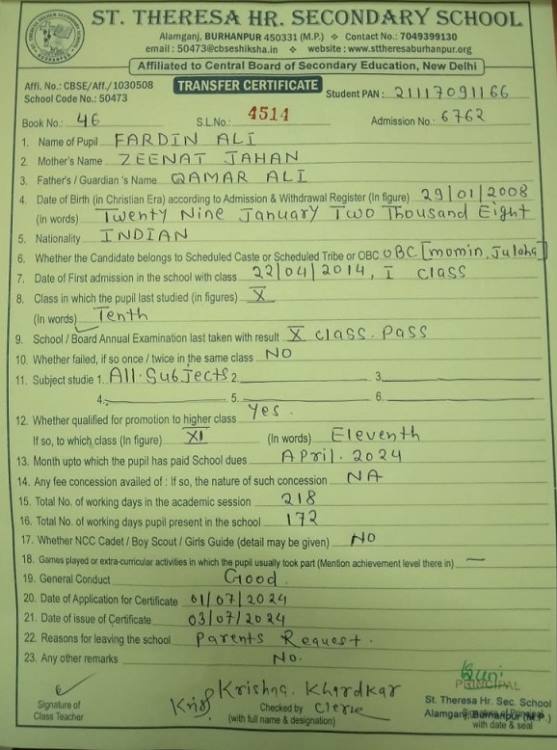 ST. THERESA HR. SECONDARY SCHOOL
Alamganj, BURHANPUR 450331 (M.P.) ❖ Contact No.: 7049399130
email : 50473@cbseshiksha.in ❖ website : www.sttheresaburhanpur.org
Affiliated to Central Board of Secondary Education, New Delhi
Affi. No.: CBSE/Aff./1030508 TRANSFER CERTIFICATE Student PAN : 21117091166
School Code No.: 50473
Book No.: 46 S.L.No.: 4514 Admission No.: 6762
1. Name of Pupil FARDIN ALI
2. Mother's Name ZEENAT JAHAN
3. Father's / Guardian 's Name QAMAR ALI
4. Date of Birth (in Christian Era) according to Admission & Withdrawal Register (In figure) 29/01/2008
(in words) Twenty Nine January Two Thousand Eight
5. Nationality INDIAN
6. Whether the Candidate belongs to Scheduled Caste or Scheduled Tribe or OBC OBC [momin, Julaha]
7. Date of First admission in the school with class 22/04/2014, I class
8. Class in which the pupil last studied (in figures) X
(In words) Tenth
9. School / Board Annual Examination last taken with result X class. Pass
10. Whether failed, if so once / twice in the same class NO
11. Subject studie 1. All. Subjects 2. 3.
4. 5. 6.
12. Whether qualified for promotion to higher class Yes.
If so, to which class (In figure) XI (In words) Eleventh
13. Month upto which the pupil has paid School dues April. 2024
14. Any fee concession availed of : If so, the nature of such concession NA
15. Total No. of working days in the academic session 218
16. Total No. of working days pupil present in the school 172
17. Whether NCC Cadet / Boy Scout / Girls Guide (detail may be given) NO
18. Games played or extra-curricular activities in which the pupil usually took part (Mention achievement level there in) —
19. General Conduct Good.
20. Date of Application for Certificate 01/07/2024
21. Date of issue of Certificate 03/07/2024
22. Reasons for leaving the school Parents Request.
23. Any other remarks No.
PRINCIPAL
Krishna. Khardkar
Signature of Checked by Clerk St. Theresa Hr. Sec. School
Class Teacher (with full name & designation) Alamganj, Burhanpur (M.P.)
with date & seal